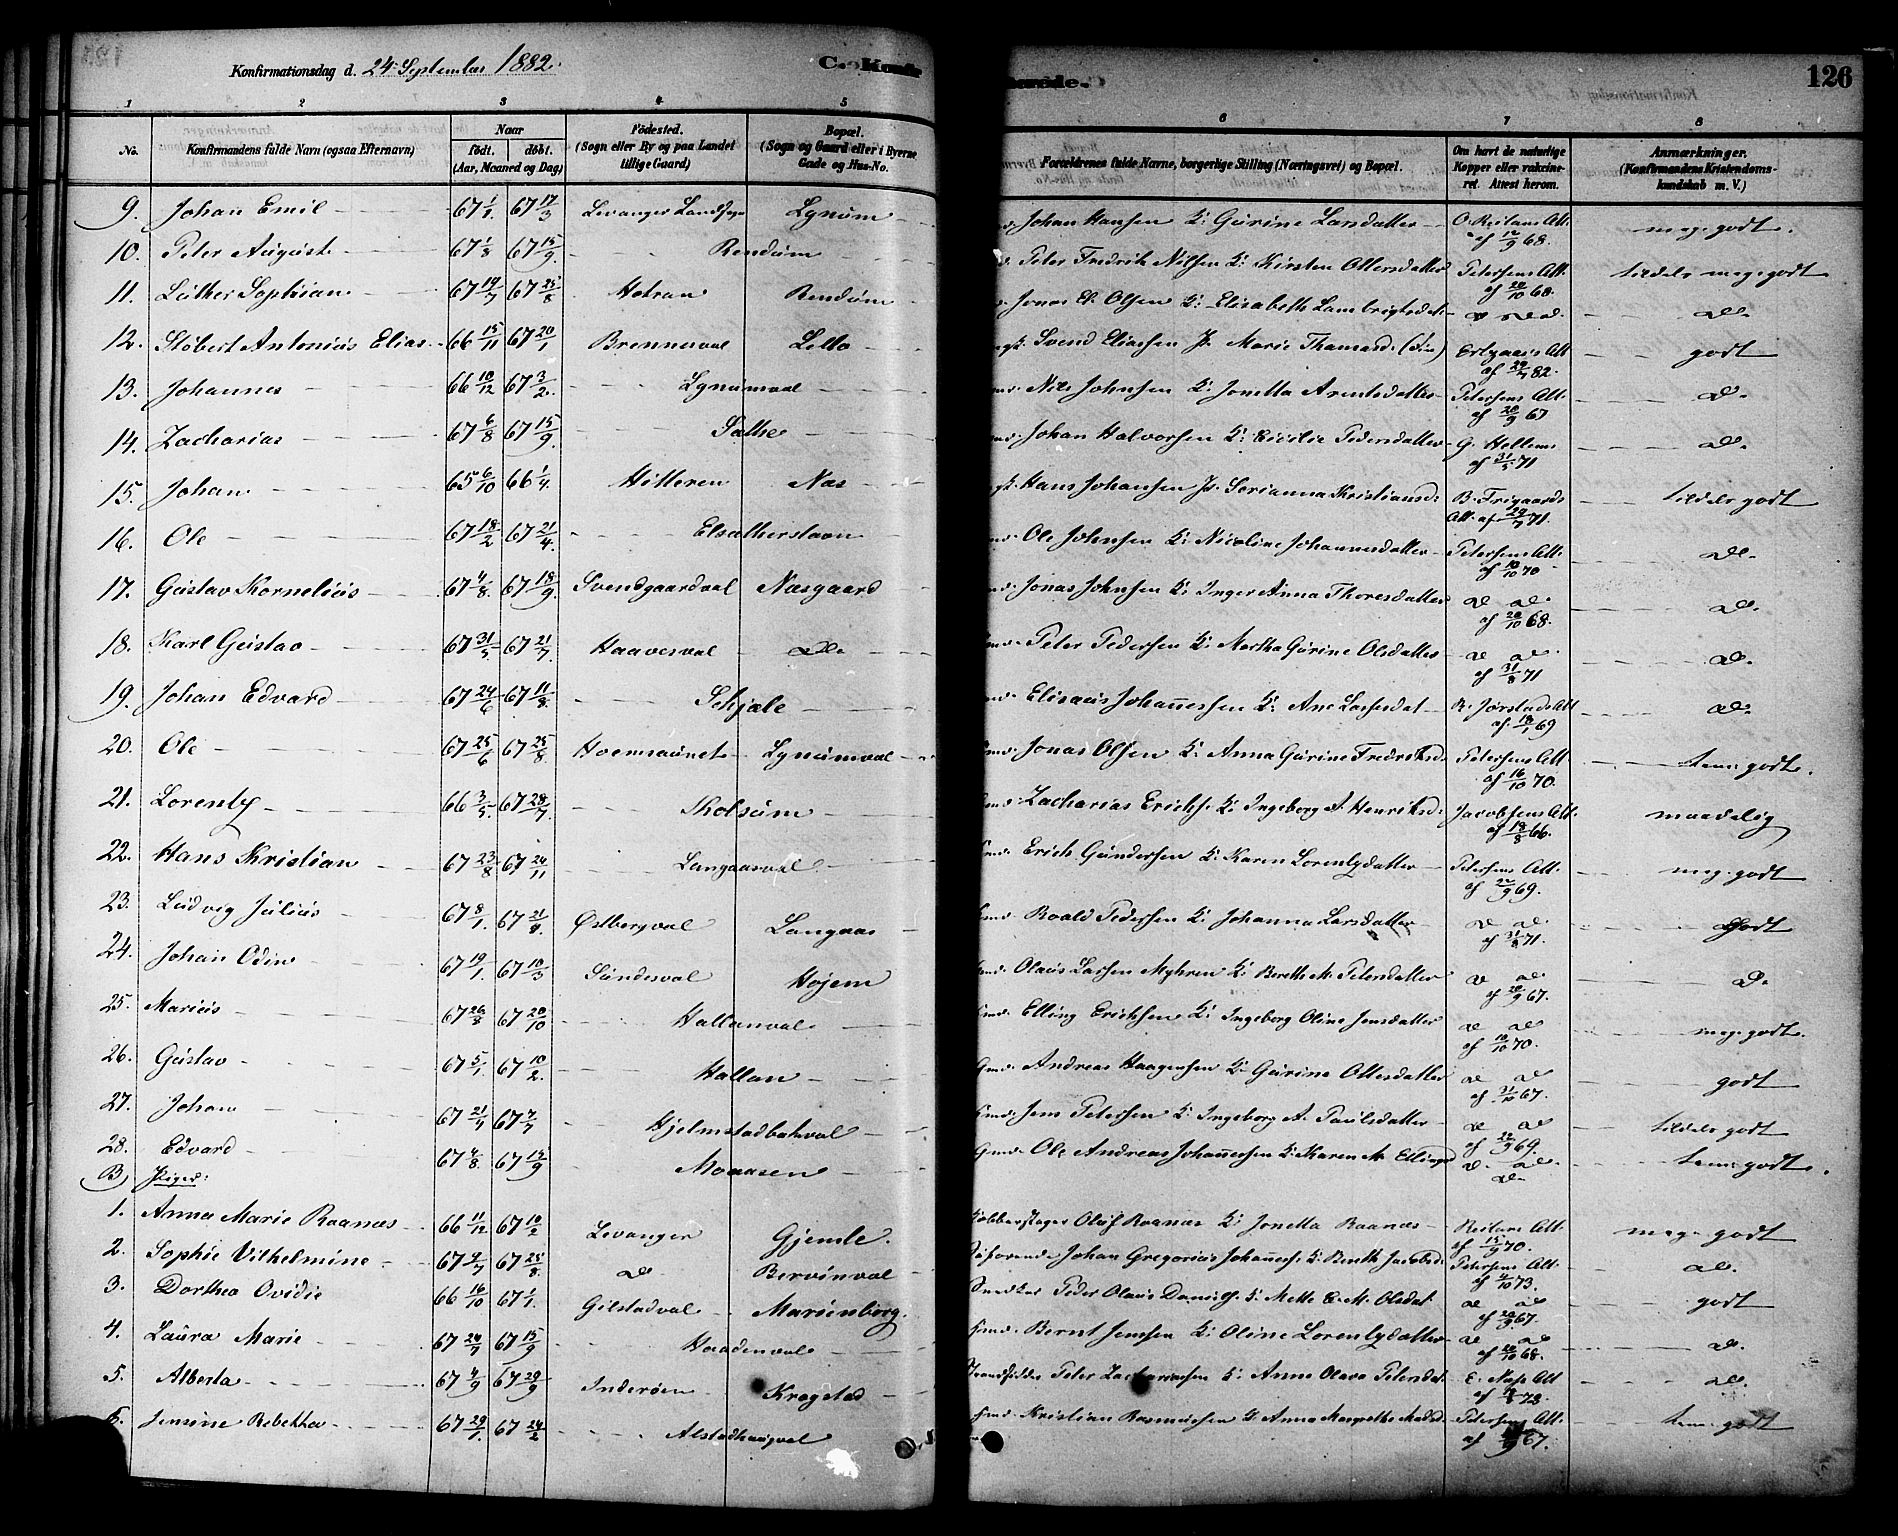 Konfirmationsdag d. 24 September 1882.
C. Konfir
merede.
126
1 2 3 4 5 6 7 8
No.
Konfirmandens fulde Navn (ogsaa Efternavn)
Naar
født. døbt.
(Aar, Maaned og Dag)
Fødested.
(Sogn eller By og paa Landet
tillige Gaard)
Bopæl.
(Sogn og Gaard eller i Byerne
Gade og Hus-No.
Forældrenes fulde Navne, borgerlige Stilling (Næringsvei) og Bopæl.
Om havt de naturlige
Kopper eller vakcine-
ret. Attest herom.
Anmærkninger.
(Konfirmandens Kristendoms-
kundskab m. V.)
9. Johan Emil 67 1/1. 67 17/3 Levanger Landsogn Lynum Johan Hansen K: Gurine Larsdatter O. Reitans Att. af 12/9 68. meg. godt.
10. Peter August 67 1/8 67 15/9. Rendum Peter Fredrik Nilsen K: Kirsten Ottersdatter Petersens Att. af 20/10 68. tildels meg. godt
11. Luther Sophian 67 19/7 67 25/8 Hotran Rendum Jonas El. Olsen K: Elisabeth Lambrigtsdat. do do. do.
12. Støbert Antonius Elias 66 15/11 67 20/1 Brennaval Lello Svend Eliassen P. Marie Thomasd. Att af 29/7 82. godt
13. Johannes 66 10/12 67 3/2. Lynumval Nils Johnsen K: Jonetta Arentsdatter Petersens Att. af 20/9 67 do.
14. Zacharias 67 6/8 67 15/9. Salthe Johan Halvorsen K: Cicilie Pedersdatter G. Hellems af 31/5 71 do.
15. Johan 65 6/10 66 1/4. Hitteren Næs Hans Johansen P. Serianna Kristiansd: B. Frigaards Att. af 29/7 71. tildels godt
16. Ole 67 18/2 67 21/4. Elsatherstavn Ole Johnsen K: Nicoline Johannesdatter Petersens Att. af 10/10 70 do.
17. Gustav Kornelius 67 4/8. 67 18/9. Svendgaardval Næsgaard Jonas Johnsen K: Inger Anna Thoresdatter do do. af 20/10 68. do.
18. Karl Gustav 67 31/5 67 21/7. Haavesval do. Peter Pedersen K: Martha Gurine Olsdatter do do. af 31/8 71 do.
19. Johan Edvard 67 24/6 67 11/8. Schjale Elisæus Johannessen K: Ane Lassesdat R. Jørstads Att af 18/1 69 do.
20. Ole 67 25/6 67 25/8. Hoemsaunet Lynumval Jonas Olsen K: Anna Gurine Fredriksd: Petersens Att. af 16/10 70. tem: godt.
21. Lorents 66 3/5. 67 28/7. Skolsum Zacharias Erichs. K: Ingeborg A. Henriksd: Jacobsens Att. af 18/8 66. maadelig
22. Hans Kristian 67 23/8 67 24/11 Langaasval. Erich Gundersen K: Karen Lorentsdatter Petersens Att. af 22/9 69. meg. godt
23. Ludvig Julius 67 8/1. 67 21/4. Østbergval Langaas Roald Pedersen K: Johanna Larsdatter do do. af 31/8 71. Godt
24. Johan Odin 67 19/1. 67 10/3 Sundesval Højem Olaus Lassen Myhren K: Bereth M. Petersdatter do do. af 20/9 67. do.
25. Marius 67 26/8 67 20/10 Hallanval Elling Erichsen K: Ingeborg Oline Jensdatter do do af 10/10 70. meg. godt.
26. Gustav 67 5/1. 67 10/2. Hallan Andreas Haagensen K: Gurine Ottesdatter do do af 31/10 67. godt
27. Johan 67 21/4 67 7/7 Hjelmstadbakval Jens Petersen K: Ingeborg A. Paulsdatter do do af 22/9 69. tildels godt
28. Edvard 67 4/8. 67 15/9 Moaasen Ole Andreas Johannessen K: Karen M. Ellingsd do. do. do. tem: godt.
B) Piger:
1. Anna Marie Raanæs 66 11/12 67 10/2 Levanger Gjemle. Kobberslager Oluf Raanæs K: Jonetta Raanæs Reitans Att. af 15/9 70. meg. godt
2. Sophie Vilhelmine 67 2/7 67 25/8. do. Bervinval Johan Gregorius Johannes. K: Bereth Jacobsd: Petersens Att. af 2/10 73. do.
3. Dorthea Ovidie 66 16/10 67 1/1. Gilstadval Marienborg. Snedker Peder Olaus Daniels. K: Mette E. M. Olsdat. do do af 20/9 67. godt
4. Laura Marie 67 24/7 67 15/9 Haadenval Bernt Jensen K: Oline Lorentsdatter do do. af 20/10 68. do.
5. Alberta 67 4/9 67 29/9 Inderøen Kragstad Peter Zachariasen K: Anne Olava Petersdat. Att af 78 do.
6. Jensine Rebekka 67 29/1. 67 24/2 Alstadhaugval Kristian Rasmussen K. Anna Margrethe Madsd. Petersens Att. af 67. tem: godt